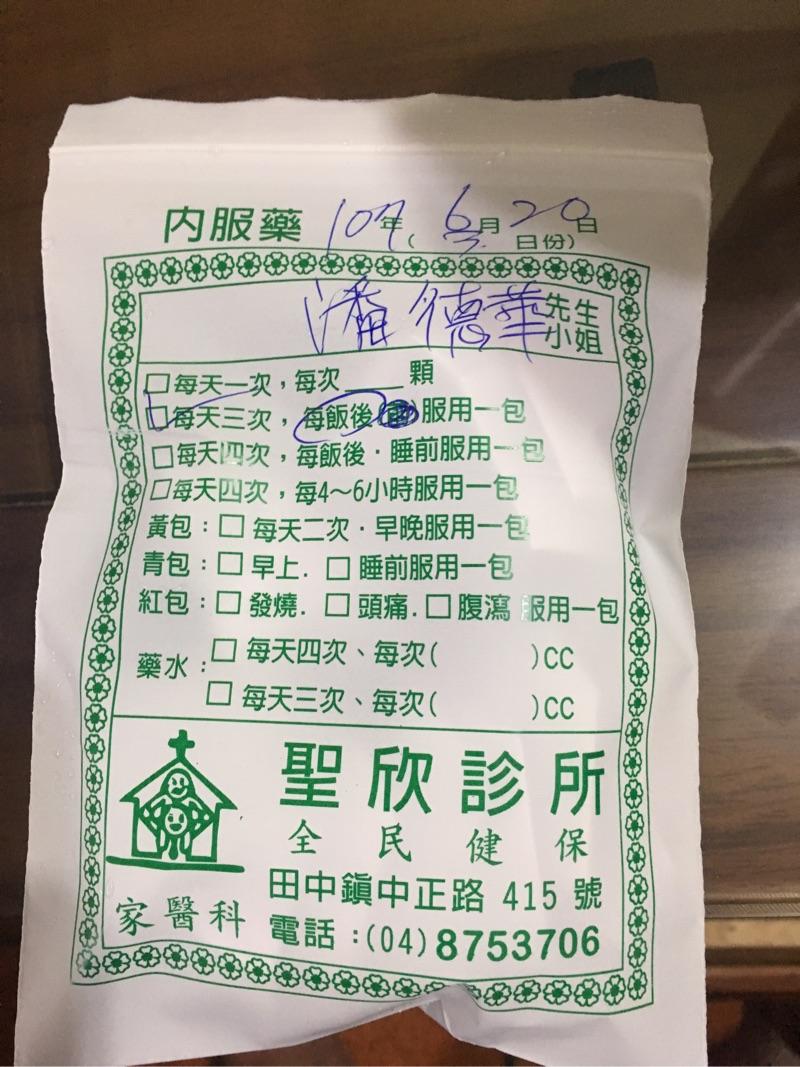 內服藥 107年6月20日
(三日份)
潘德華 先生
小姐
□每天一次，每次____顆
□每天三次，每飯後(前)服用一包
□每天四次，每飯後．睡前服用一包
□每天四次，每4～6小時服用一包
黃包：□每天二次．早晚服用一包
青包：□早上．□睡前服用一包
紅包：□發燒．□頭痛．□腹瀉 服用一包
藥水：□每天四次、每次( )CC
□每天三次、每次( )CC
聖欣診所
全民健保
家醫科
田中鎮中正路 415 號
電話：(04)8753706